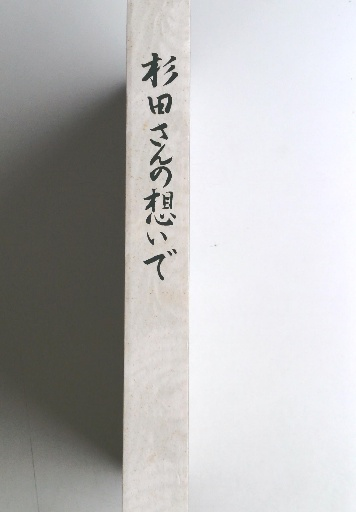 杉田さんの想いで